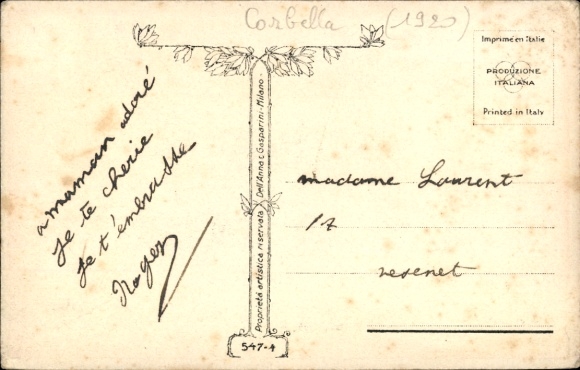 Corbella (1920)
Imprimé en Italie
PRODUZIONE
ITALIANA
Printed in Italy
a maman adoré
Je te cherie
Je t'embrasse
Roger
Proprietà artistica riservata Dell'Anna & Gasparini - Milano -
madame Laurent
17
vesenet
547-4